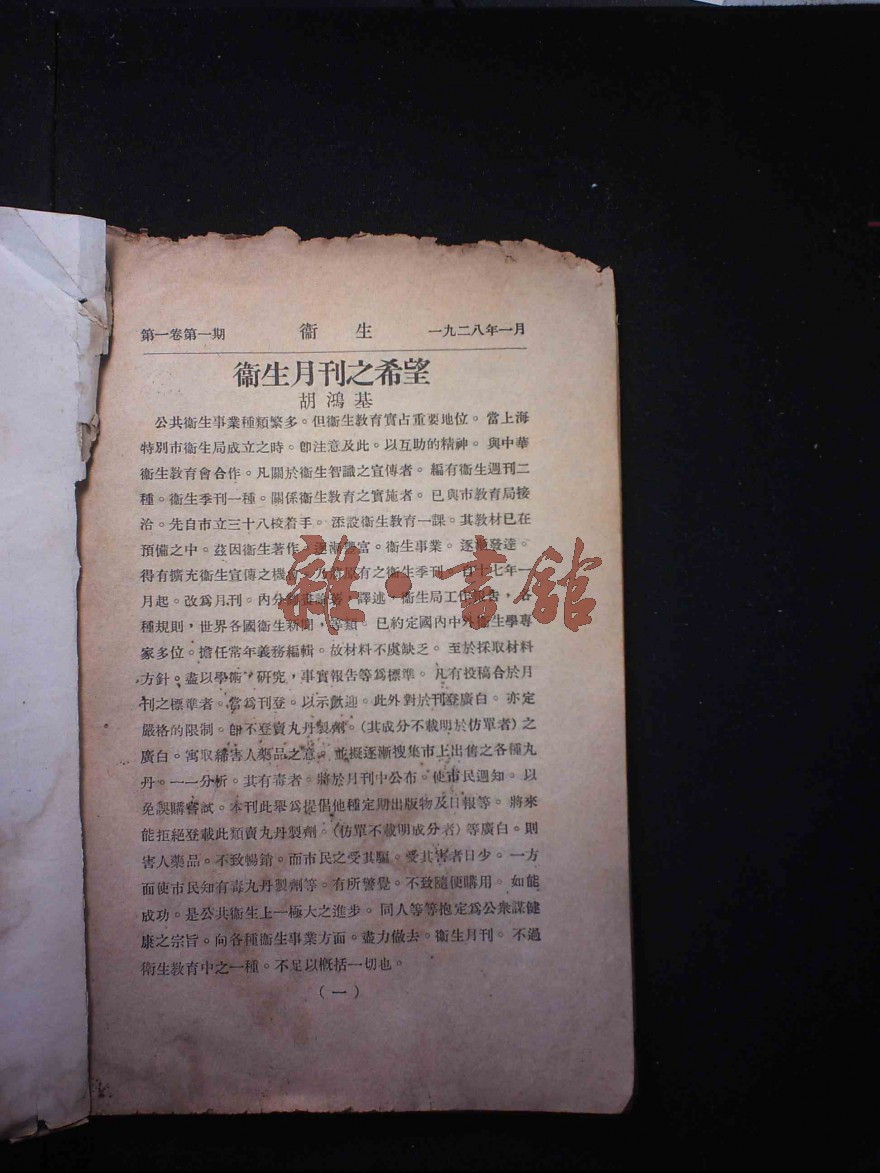 第一卷第一期 衞生 一九二八年一月
衞生月刊之希望
胡鴻基
公共衞生事業種類繁多。但衞生教育實占重要地位。當上海
特別市衞生局成立之時。卽注意及此。以互助的精神。與中華
衞生教育會合作。凡關於衞生智識之宣傳者。編有衞生週刊二
種。衞生季刊一種。關係衞生教育之實施者。已與市教育局接
洽。先自市立三十八校着手。添設衞生教育一課。其教材已在
預備之中。茲因衞生著作。逐漸豐富。衞生事業。逐漸發達。
得有擴充衞生宣傳之機會。乃將原有之衞生季刊。自十七年一
月起。改爲月刊。內分論著,譯述,衞生局工作報告,各
種規則,世界各國衞生新聞,等類。已約定國內中外衞生學專
家多位。擔任常年義務編輯。故材料不虞缺乏。至於採取材料
方針。盡以學術,研究,事實報告等爲標準。凡有投稿合於月
刊之標準者。當爲刊登。以示歡迎。此外對於刊登廣白。亦定
嚴格的限制。卽不登賣丸丹製劑。(其成分不載明於仿單者)之
廣白。寓取締害人藥品之意。並擬逐漸搜集市上出售之各種丸
丹。一一分析。其有毒者。將於月刊中公布。使市民週知。以
免誤購嘗試。本刊此舉爲提倡他種定期出版物及日報等。將來
能拒絕登載此類賣丸丹製劑。(仿單不載明成分者)等廣白。則
害人藥品。不致暢銷。而市民之受其騙。受其害者日少。一方
面使市民知有毒丸丹製劑等。有所警覺。不致隨便購用。如能
成功。是公共衞生上一極大之進步。同人等等抱定爲公衆謀健
康之宗旨。向各種衞生事業方面。盡力做去。衞生月刊。不過
衞生教育中之一種。不足以概括一切也。
(一)
雜·書館